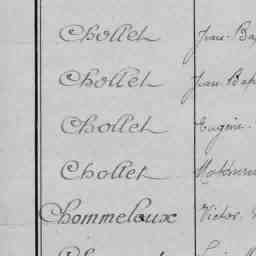 Chollet Jean-Bap
Chollet Jean Bap
Chollet Eugène
Chollet Mathurin
Chommeloux Victor